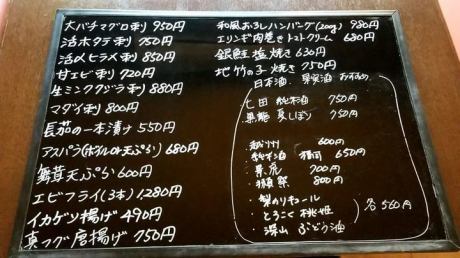 大バチマグロ刺 950円
活ホタテ刺 750円
活〆ヒラメ刺 850円
甘エビ刺 720円
生ミンククジラ刺 880円
マダイ刺 800円
長茄の一本漬け 550円
アスパラ(ボイルor天ぷら) 680円
舞茸天ぷら 600円
エビフライ(3本) 1,280円
イカゲソ揚げ 490円
真フグ唐揚げ 750円
和風おろしハンバーグ(200g) 980円
エリンギ肉巻きトマトクリーム 680円
銀鮭塩焼き 630円
地竹の子焼き 750円
日本酒、果実酒 おすすめ
七田 純米酒 750円
黒龍 夏しぼり 750円
越州 600円
純米酒 磯自慢 650円
700円
獺祭 800円
梨のリキュール
とろこく桃姫
深山 ぶどう酒
各560円